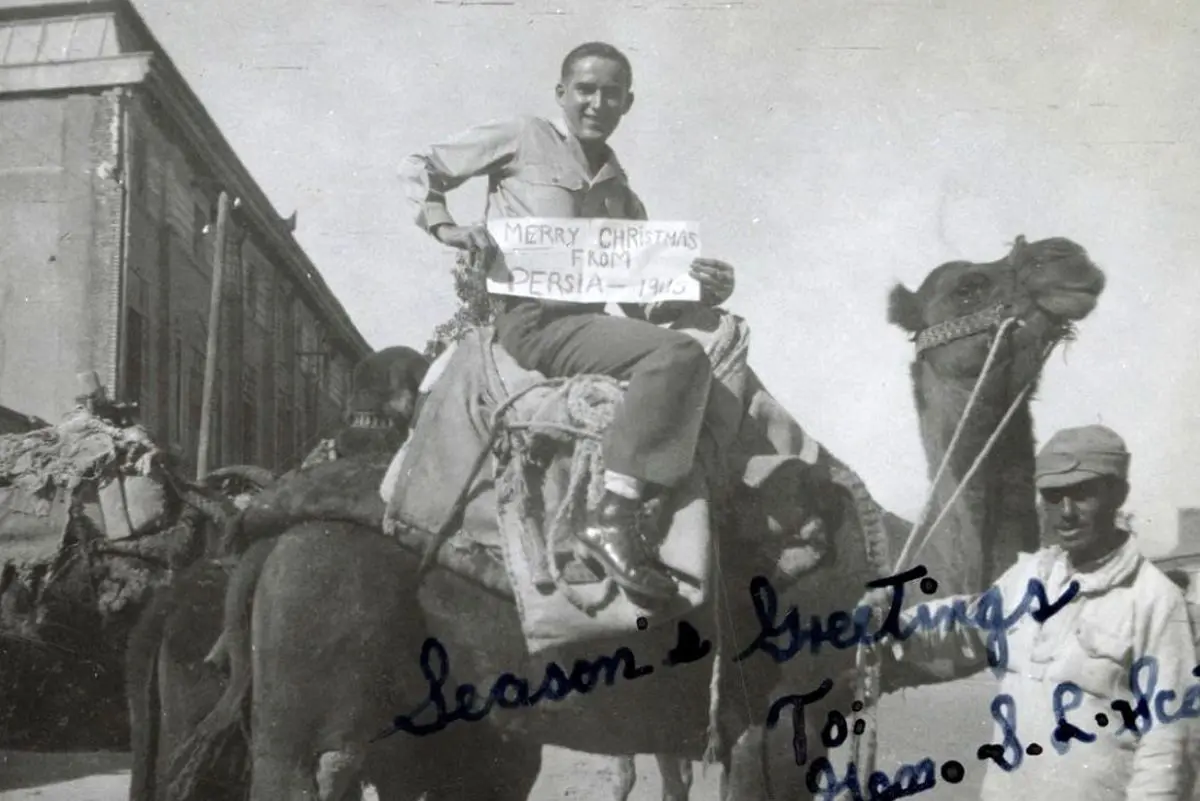 MERRY CHRISTMAS
FROM
PERSIA — 1945
Season's Greetings
To:
Hon. S. L.